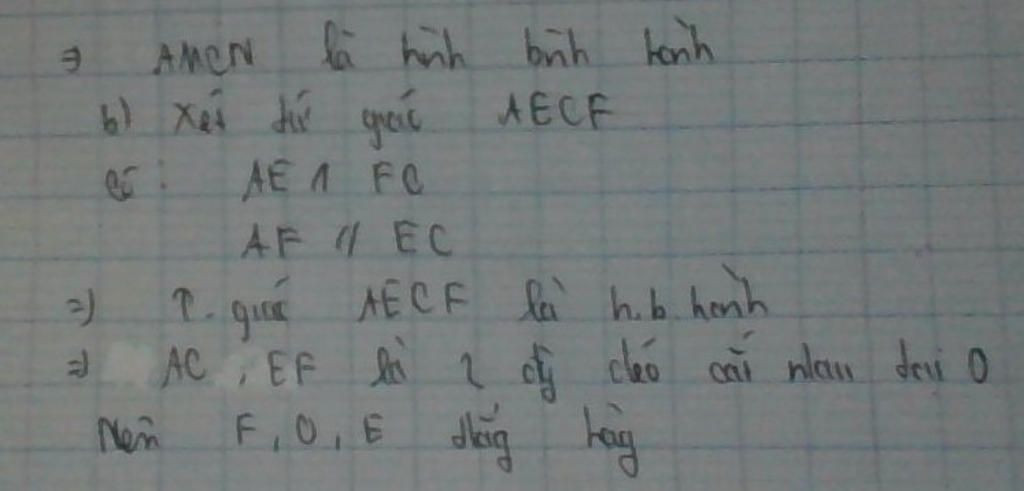 ⇒ AMCN là hình bình hành
b) Xét tứ giác AECF
có: AE // FC
AF // EC
⇒ T. giác AECF là h.b.hành
⇒ AC, EF là 2 đg chéo cắt nhau tại O
Nên F, O, E thẳg hàg